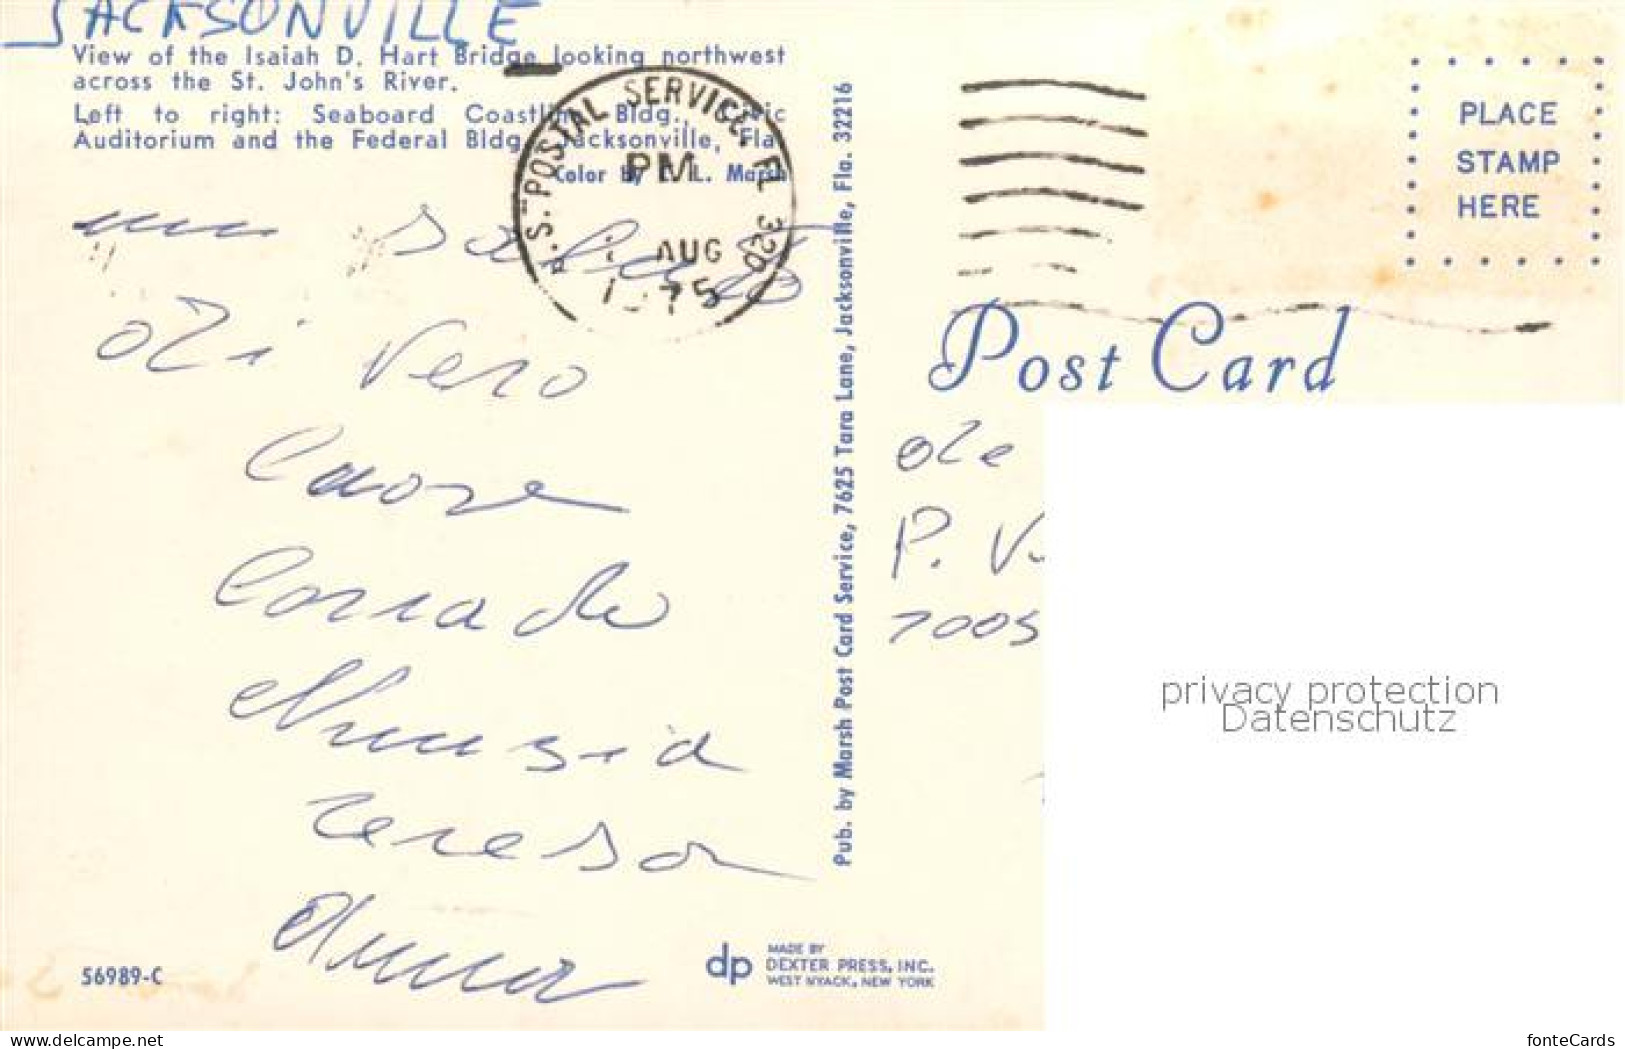 JACKSONVILLE
View of the Isaiah D. Hart Bridge looking northwest
across the St. John's River.
Left to right: Seaboard Coastline Bldg., Civic
Auditorium and the Federal Bldg. Jacksonville, Fla.
Color by L. Marsh
U.S. POSTAL SERVICE, FL 320
PM
AUG
1975
un saluto
di vero
cuore
Corrado
Nunzia
Teresa
Anna
56989-C
dp
MADE BY
DEXTER PRESS, INC.
WEST NYACK, NEW YORK
Pub. by Marsh Post Card Service, 7625 Tara Lane, Jacksonville, Fla. 32216
PLACE
STAMP
HERE
Post Card
P. V.
7005
privacy protection
Datenschutz
www.delcampe.net
fonteCards